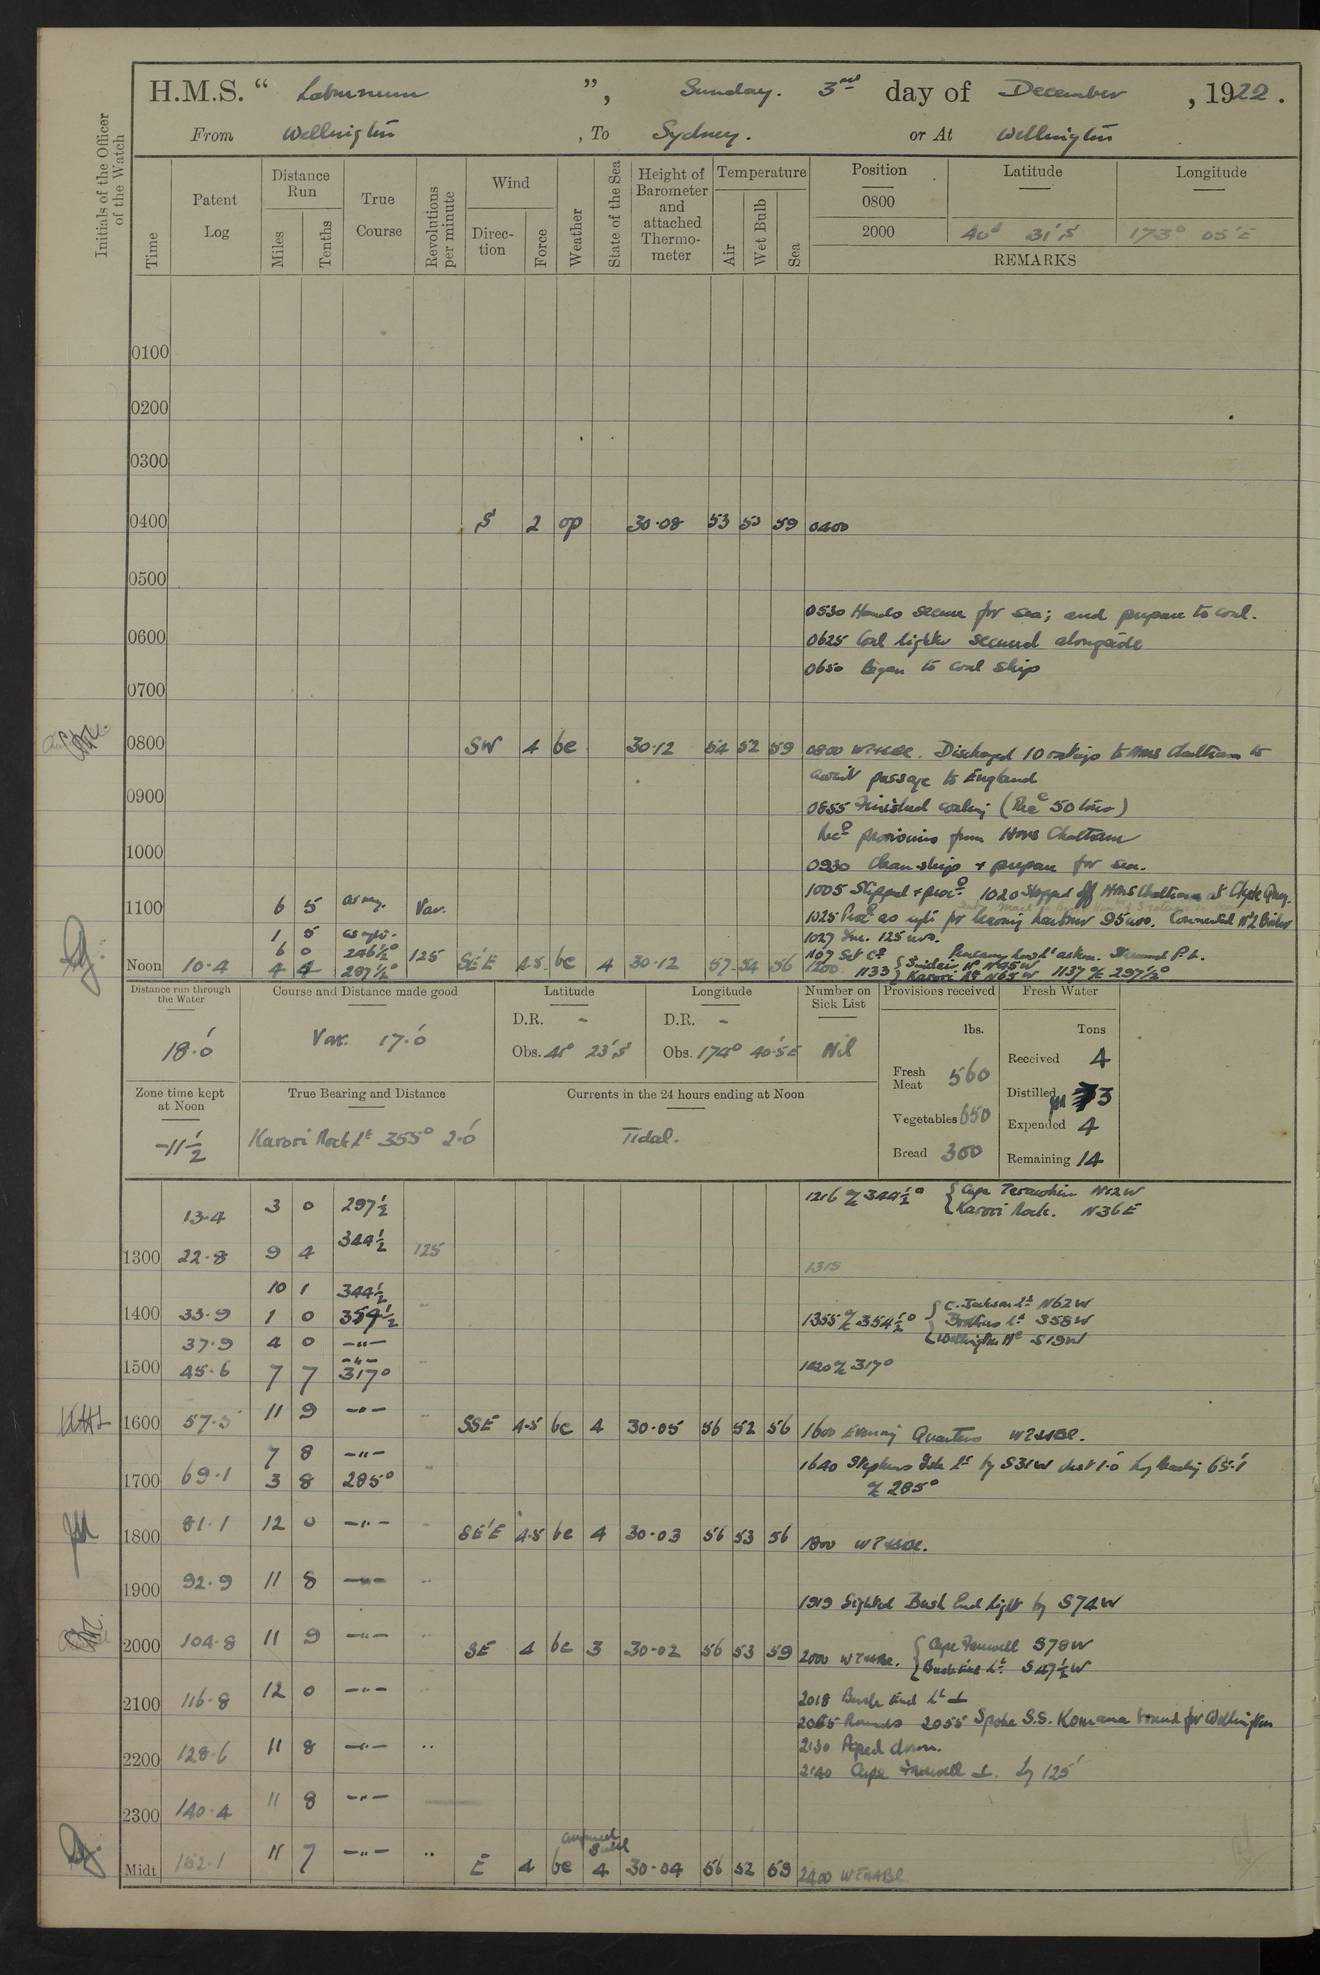 H.M.S. “ Laburnum ”, Sunday. 3rd day of December, 1922.
From Wellington, To Sydney. or At Wellington
Initials of the Officer of the Watch
Time
Patent Log
Distance Run
Miles
Tenths
True Course
Revolutions per minute
Wind
Direction
Force
Weather
State of the Sea
Height of Barometer and attached Thermometer
Temperature
Air
Wet Bulb
Sea
Position Latitude Longitude
0800
2000 40° 31' S 173° 05' E
REMARKS
0100
0200
0300
0400 S 2 op 30.08 53 53 59 0400
0500
0530 Hands secure for sea; and prepare to coal.
0600
0625 Coal lighter secured alongside
0650 Began to coal ship
0700
0800 SW 4 bc 30.12 54 52 59 0800 Discharged 10 ratings to HMS Chatham to
await passage to England
0900
0855 Finished coaling (Recd 50 tons)
Recd provisions from HMS Chatham
1000
0930 Clean ship & prepare for sea.
1005 Slipped & procd. 1020 Stopped off HMS Chatham at Clyde Quay.
1100 6 5 as reqr. Var.
1025 Procd as for leaving harbour 95 revs.
1 5 as reqte.
1027 Inc. 125 revs.
6 0 246½° 125
1107 Set Co
Noon 10.4 4 4 297½° SE'E 4.5 bc 4 30.12 57 54 56 1200
1133 { Sinclair Hd N45W
{ Karori Rk N65W 1137 a/c 297½°
Distance run through the Water
18.0'
Course and Distance made good
Var. 17.0'
Latitude
D.R. -
Obs. 41° 23' S
Longitude
D.R. -
Obs. 174° 40.5 E
Number on Sick List
Nil
Provisions received
lbs.
Fresh Meat 560
Vegetables 650
Bread 300
Fresh Water
Tons
Received 4
Distilled 3
Expended 4
Remaining 14
Zone time kept at Noon
-11½
True Bearing and Distance
Karori Rock Lt 355° 2.0'
Currents in the 24 hours ending at Noon
Tidal.
13.4 3 0 297½ 1216 a/c 344½° { Cape Terawhiti N12W
{ Karori Rock. N36E
1300 22.8 9 4 344½ 125
1315
10 1 344½
1400 33.9 1 0 354½ 1355 a/c 354½° { C. Jackson Lt N62W
{ Brothers Lt 358W
{ Wellington Hd S19W
37.9 4 0 —"—
—"—
1500 45.6 7 7 317° 1420 a/c 317°
1600 57.5 11 9 —"— SSE 4.5 bc 4 30.05 56 52 56 1600 Evening Quarters
7 8 —"— 1640 Stephens Isle Lt by S31W dist 1.0' Log reading 65.1'
1700 69.1 3 8 285° a/c 285°
1800 81.1 12 0 —"— SE'E 4.5 bc 4 30.03 56 53 56 1800
1900 92.9 11 8 —"—
1919 Sighted Bush End Light by S74W
2000 104.8 11 9 —"— SE 4 bc 3 30.02 56 53 59 2000 { Cape Farewell S78W
{ Bush End Lt S47½W
2100 116.8 12 0 —"— 2018 Bush End Lt ⊥
2045 Rounds 2055 Spoke S.S. Komana bound for Wellington
2200 128.6 11 8 —"— 2130 Piped down.
2140 Cape Farewell ⊥. by 125'
2300 140.4 11 8 —"—
Midt 152.1 11 7 —"— E 4 bc 4 30.04 56 52 59 2400